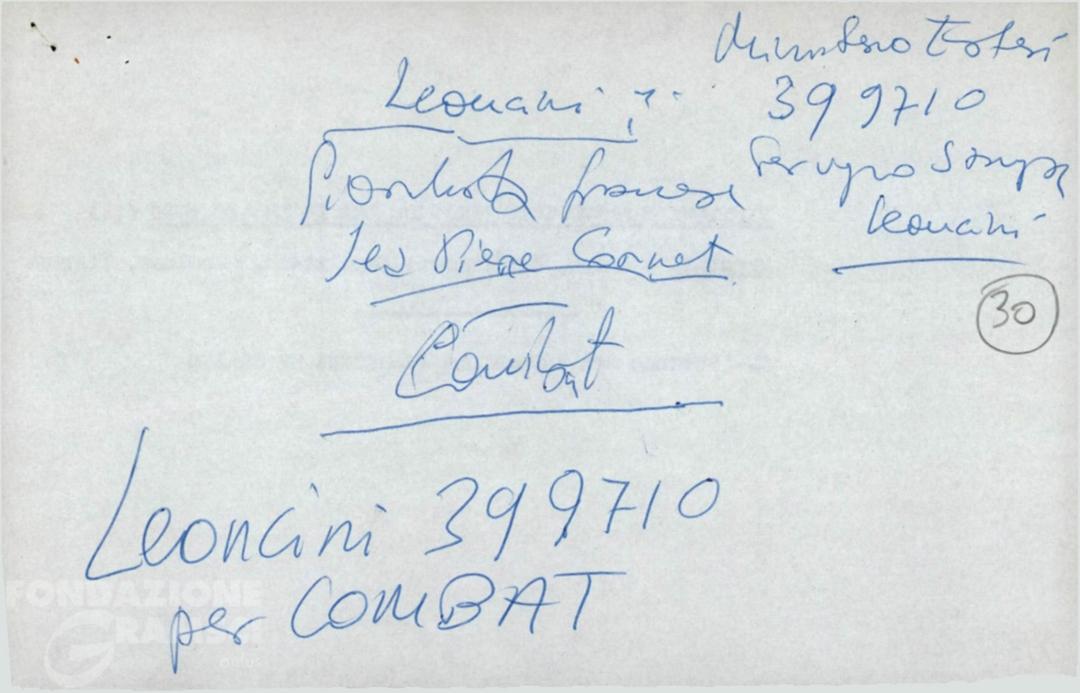 Ministero Esteri
399710
Servizio Stampa
Leoncini
30
Leoncini
Giornalista francese
Pierre Cornet
Combat
Leoncini 399710
per COMBAT
FONDAZIONE
GRAMSCI
onlus